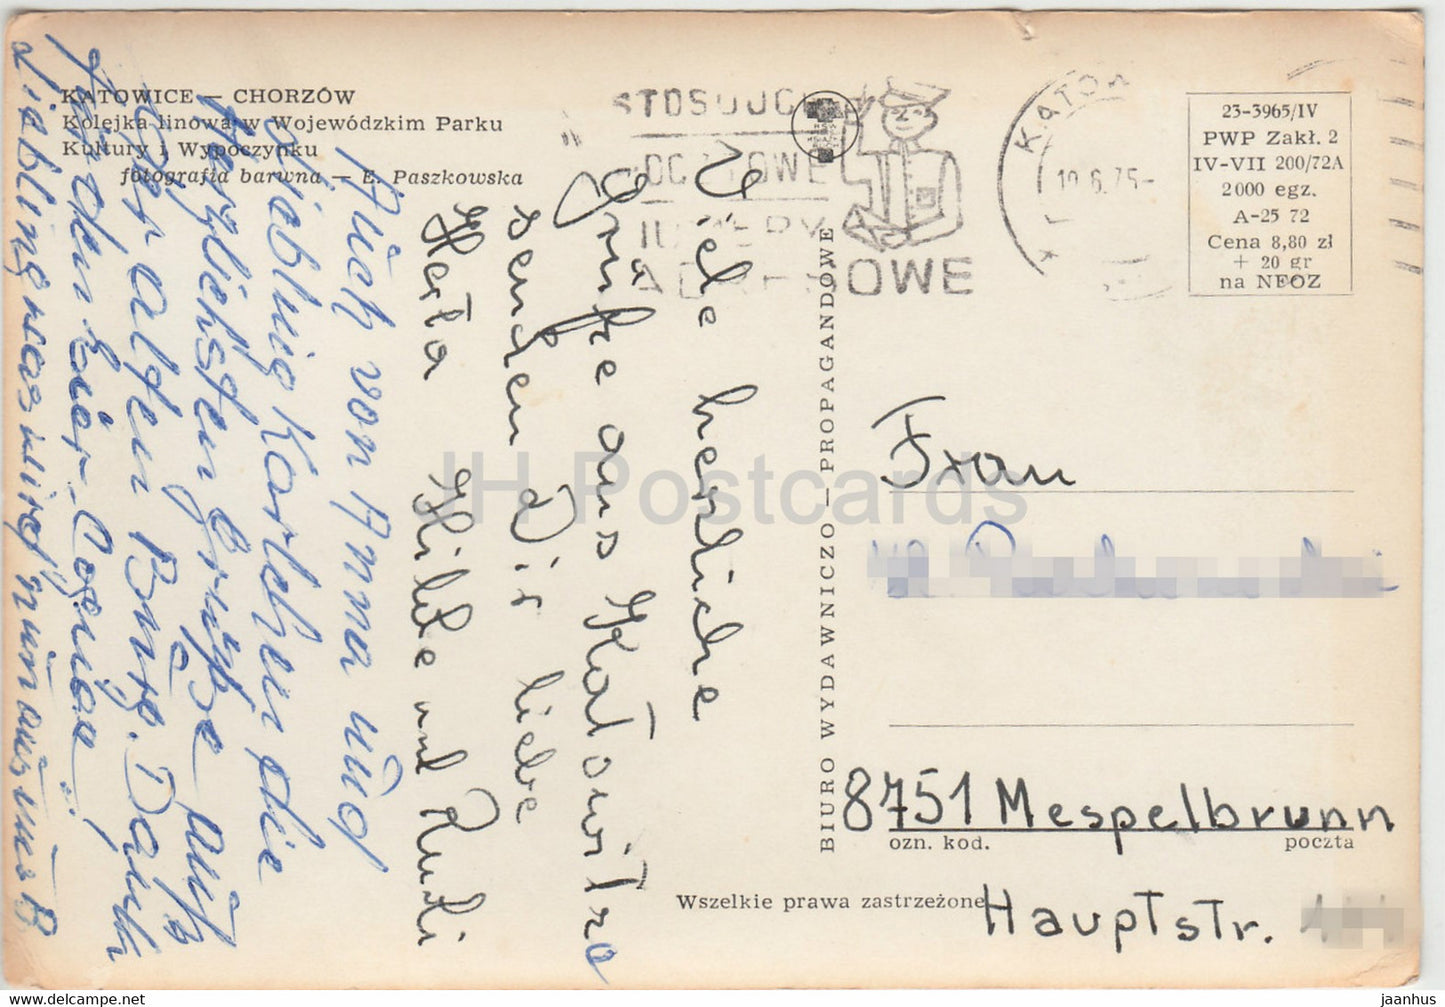 KATOWICE — CHORZÓW
Kolejka linowa w Wojewódzkim Parku
Kultury i Wypoczynku
fotografia barwna — E. Paszkowska
STOSUJCIE
POCZTOWE
NUMERY
ADRESOWE
KATO
19.6.75-
23-3965/IV
PWP Zakł. 2
IV-VII 200/72A
2000 egz.
A-25 72
Cena 8,80 zł
+ 20 gr
na NFOZ
BIURO WYDAWNICZO — PROPAGANDOWE
Viele herzliche
Grüße aus Katowitze
senden Dir liebe
Herta Hilde und Rudi
Auch von Anna und
Liebling Karlchen die
herzlichsten Grüße aus
der alten Bude. Dauch
für den Eier-Cognac
Lieblingwas wird nun aus uns B
Frau
8751 Mespelbrunn
ozn. kod.
poczta
Hauptstr.
Wszelkie prawa zastrzeżone
JH Postcards
www.delcampe.net
jaanhus